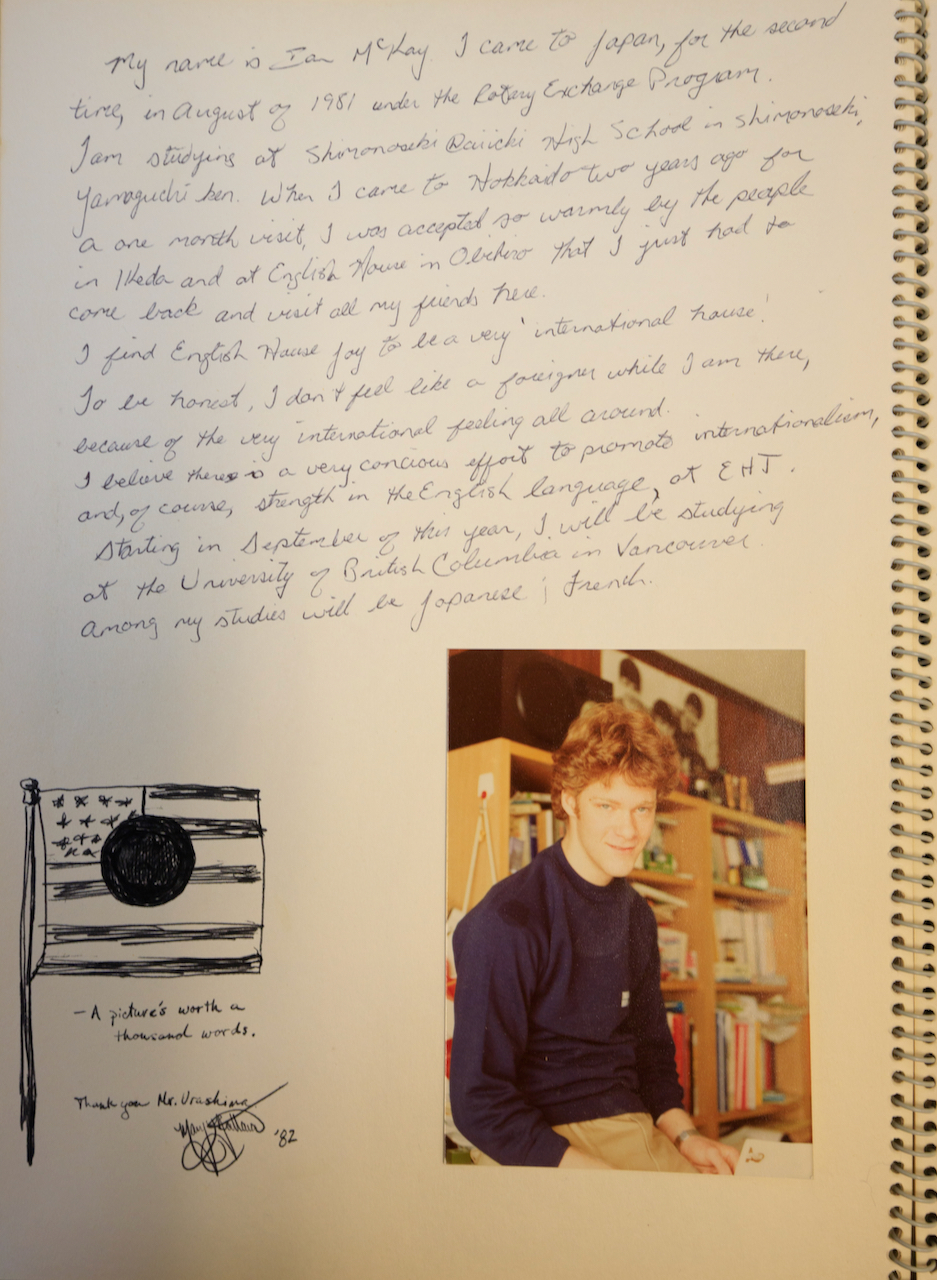 My name is Ian McKay. I came to Japan, for the second
time, in August of 1981 under the Rotary Exchange Program.
I am studying at Shimonoseki Daiichi High School in Shimonoseki,
Yamaguchi ken. When I came to Hokkaido two years ago for
a one month visit, I was accepted so warmly by the people
in Ikeda and at English House in Obihiro that I just had to
come back and visit all my friends here.
I find English House Joy to be a very 'international house'.
To be honest, I don't feel like a foreigner while I am there,
because of the very international feeling all around.
I believe there is a very concious effort to promote internationalism,
and, of course, strength in the English language, at EHJ.
Starting in September of this year, I will be studying
at the University of British Columbia in Vancouver.
Among my studies will be Japanese & French.
- A picture's worth a
thousand words.
Thank you Mr. Urashima
'82